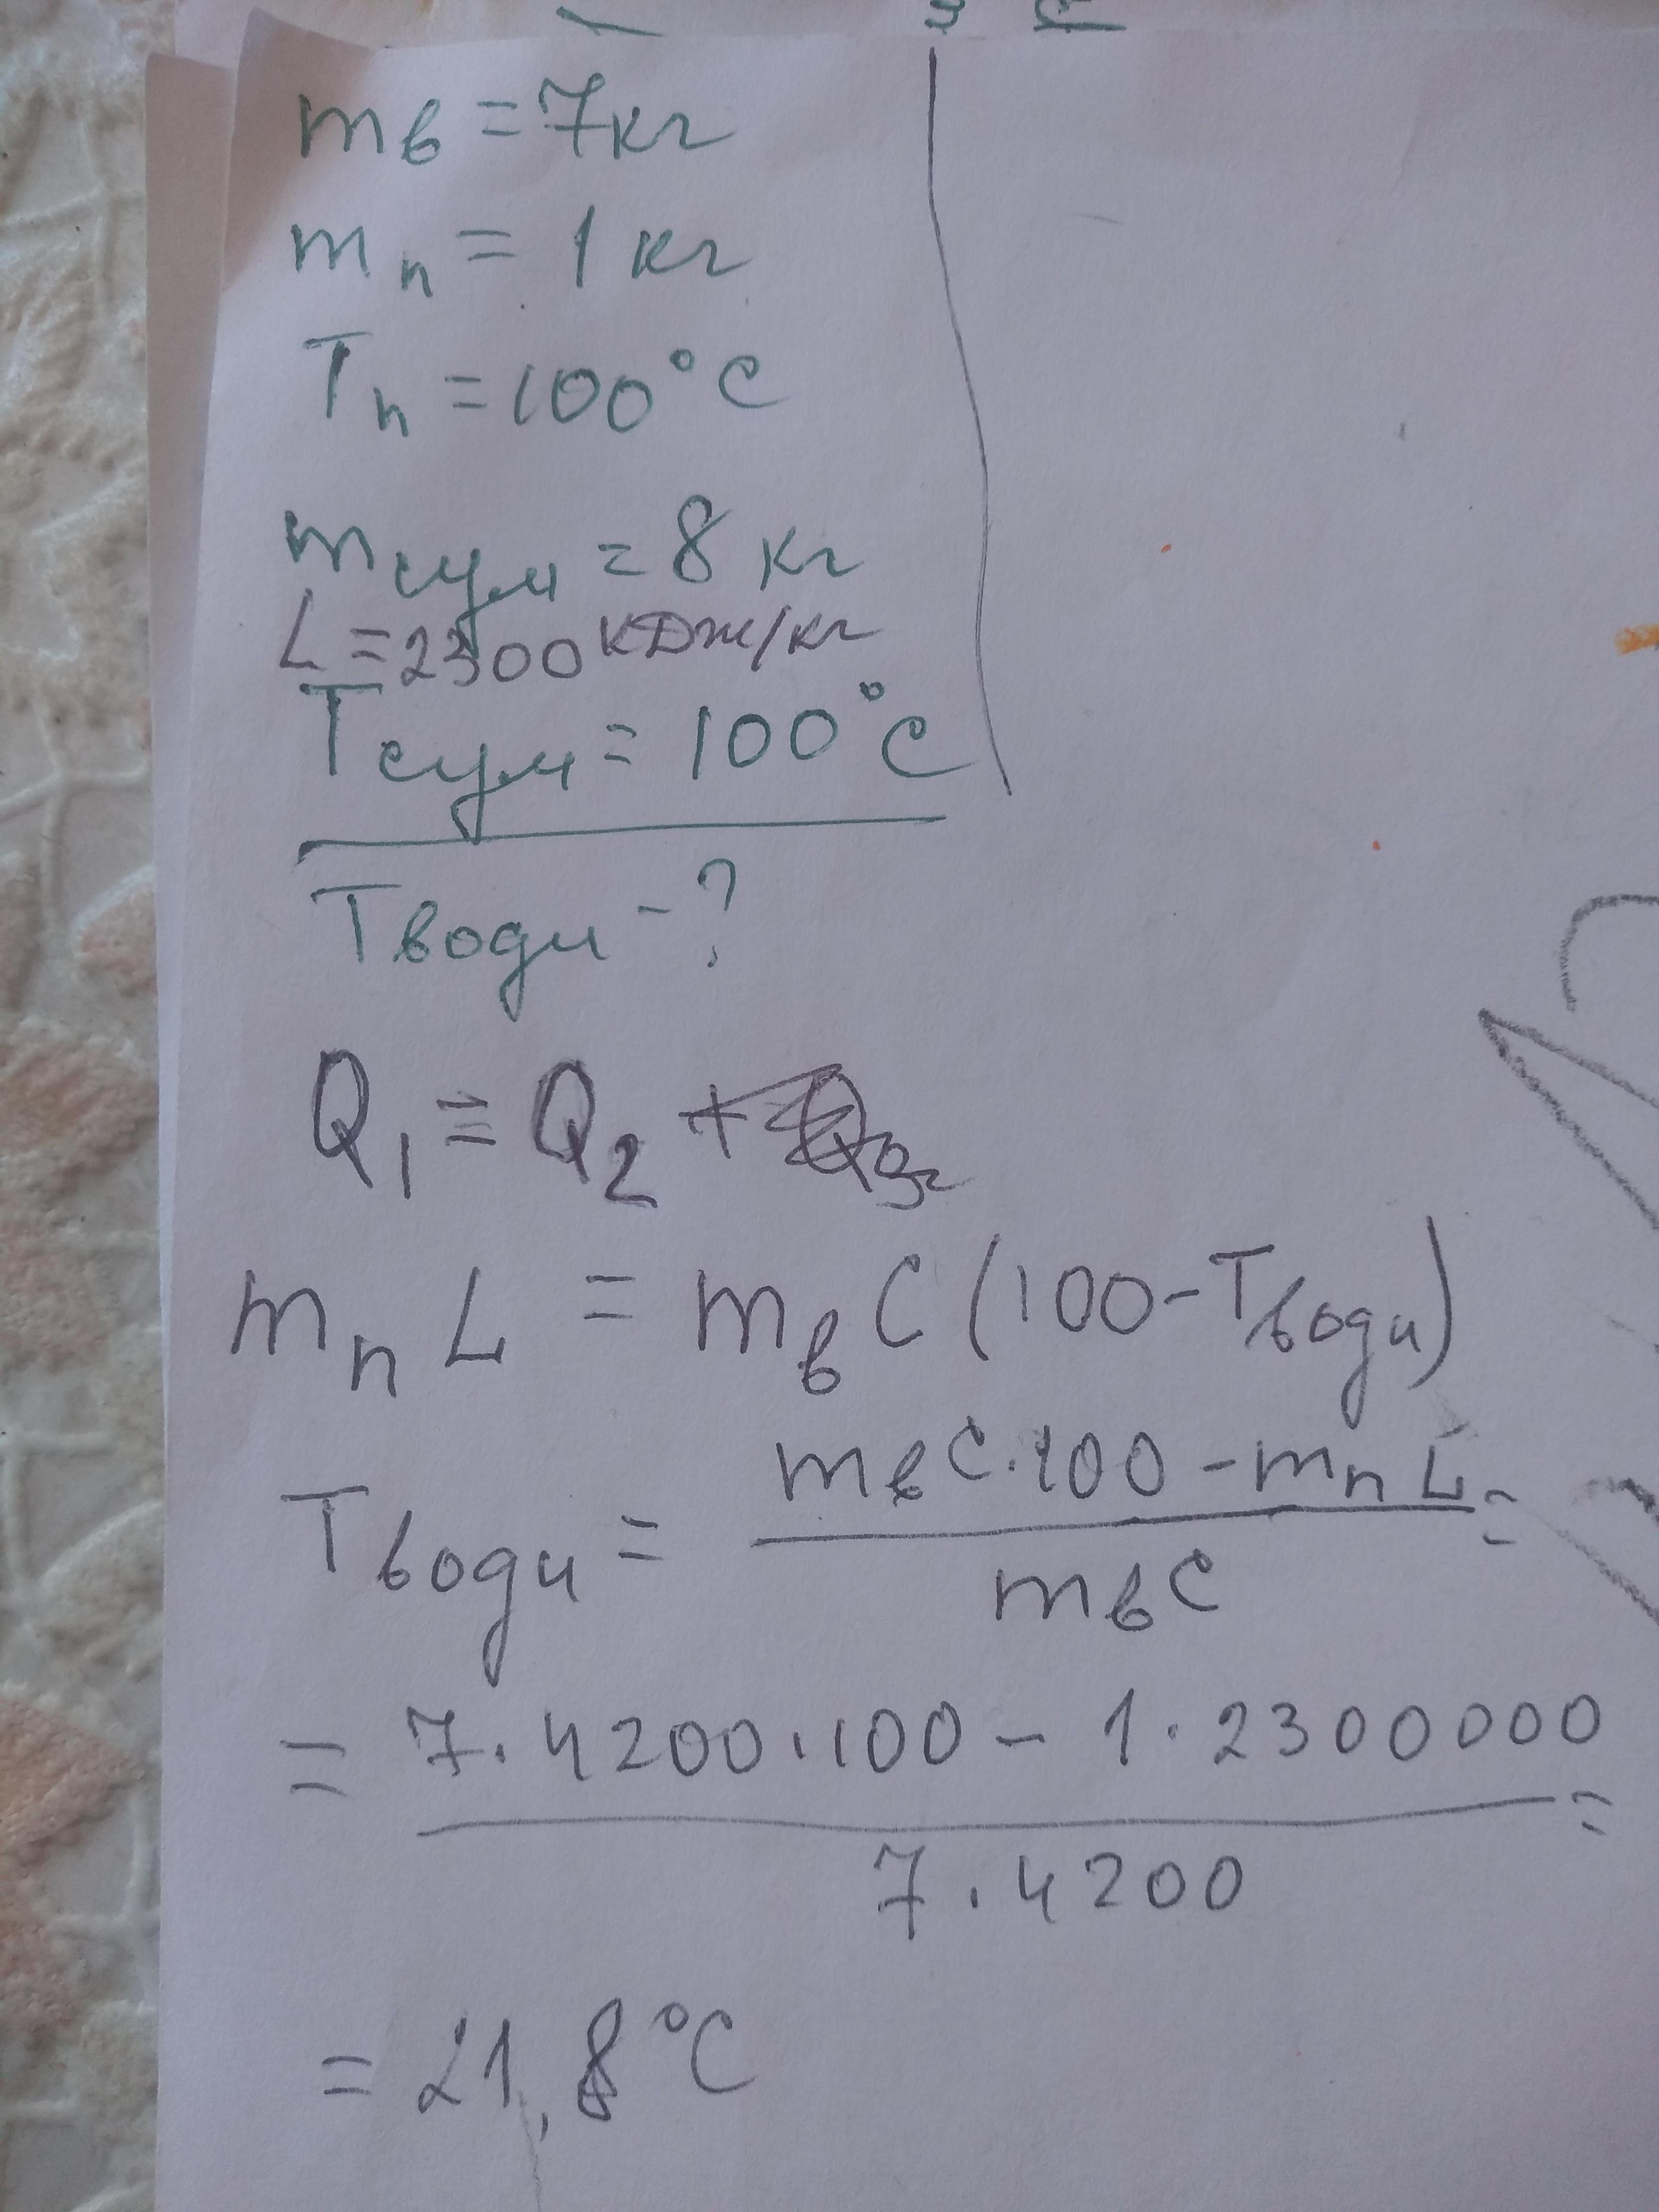 mв = 7кг
mп = 1 кг
Tп = 100°C
mсум = 8 кг
L = 2300 кДж/кг
Tсум = 100°C
Tводи - ?
Q₁ = Q₂ +
mп L = mв C (100 - Tводи)
Tводи = (mв C · 100 - mп L) / (mв C) =
= (7 · 4200 · 100 - 1 · 2300000) / (7 · 4200) =
= 21,8 °C